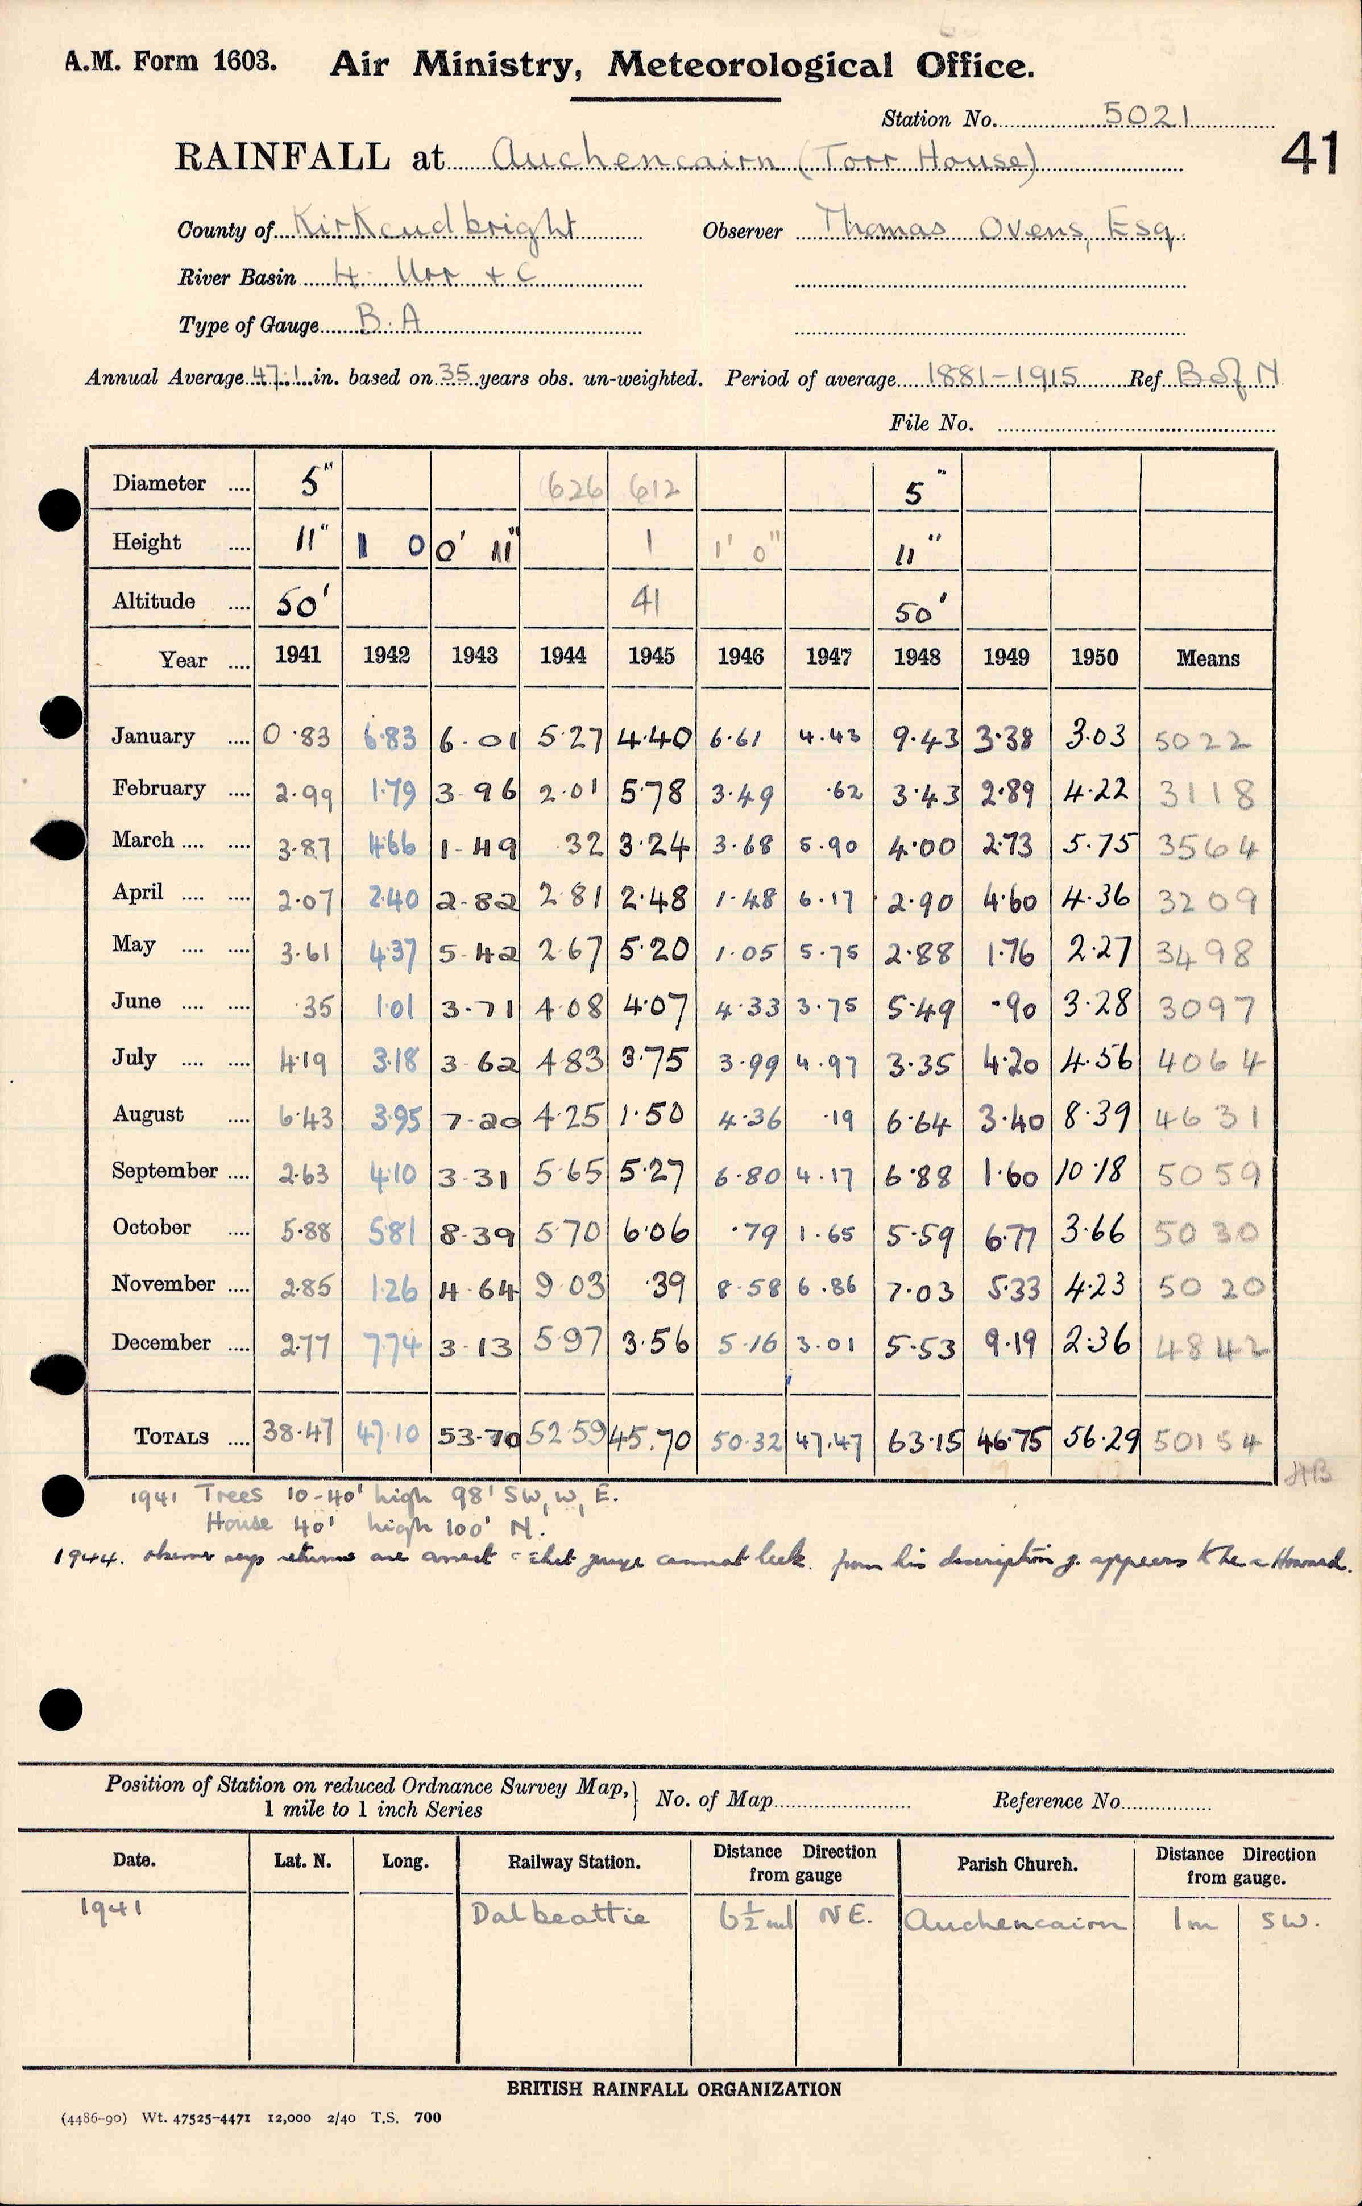 A.M. Form 1603. Air Ministry, Meteorological Office.
Station No. 5021
RAINFALL at Auchencairn (Torr House) 41
County of Kirkcudbright Observer Thomas Ovens, Esq.
River Basin 4 Urr + C
Type of Gauge B.A
Annual Average 47.1 in. based on 35 years obs. un-weighted. Period of average 1881-1915 Ref B of N
File No.
Diameter .... 5" 626 612 5"
Height .... 11" 1 0 0' 11" 1 1' 0" 11"
Altitude .... 50' 41 50'
Year .... 1941 1942 1943 1944 1945 1946 1947 1948 1949 1950 Means
January .... 0.83 6.83 6.01 5.27 4.40 6.61 4.43 9.43 3.38 3.03 5022
February .... 2.99 1.79 3 96 2.01 5.78 3.49 .62 3.43 2.89 4.22 3118
March .... .... 3.87 4.66 1.49 32 3.24 3.68 5.90 4.00 2.73 5.75 3564
April .... .... 2.07 2.40 2.82 2 81 2.48 1.48 6.17 2.90 4.60 4.36 3209
May .... .... 3.61 4.37 5.42 2.67 5.20 1.05 5.75 2.88 1.76 2.27 3498
June .... .... .35 1.01 3.71 4.08 4.07 4.33 3.75 5.49 .90 3.28 3097
July .... .... 4.19 3.18 3 62 4.83 3.75 3.99 4.97 3.35 4.20 4.56 4064
August .... 6.43 3.95 7.20 4.25 1.50 4.36 .19 6.64 3.40 8.39 4631
September .... 2.63 4.10 3.31 5.65 5.27 6.80 4.17 6.88 1.60 10.18 5059
October .... 5.88 5.81 8.39 5.70 6.06 .79 1.65 5.59 6.77 3.66 5030
November .... 2.85 1.26 4.64 9.03 .39 8.58 6.86 7.03 5.33 4.23 5020
December .... 2.77 7.74 3.13 5.97 3.56 5.16 3.01 5.53 9.19 2.36 4842
TOTALS .... 38.47 47.10 53.70 52.59 45.70 50.32 47.47 63.15 46.75 56.29 50154
HB
1941 Trees 10-40' high 98' SW, W, E.
House 40' high 100' N.
1944. observer says returns are correct & that gauge cannot leak. from his description g. appears to be a Howard.
Position of Station on reduced Ordnance Survey Map, 1 mile to 1 inch Series } No. of Map Reference No.
Date. Lat. N. Long. Railway Station. Distance Direction from gauge Parish Church. Distance Direction from gauge.
1941 Dalbeattie 6½ml NE. Auchencairn 1m SW.
BRITISH RAINFALL ORGANIZATION
(4486-90) Wt. 47525-4471 12,000 2/40 T.S. 700